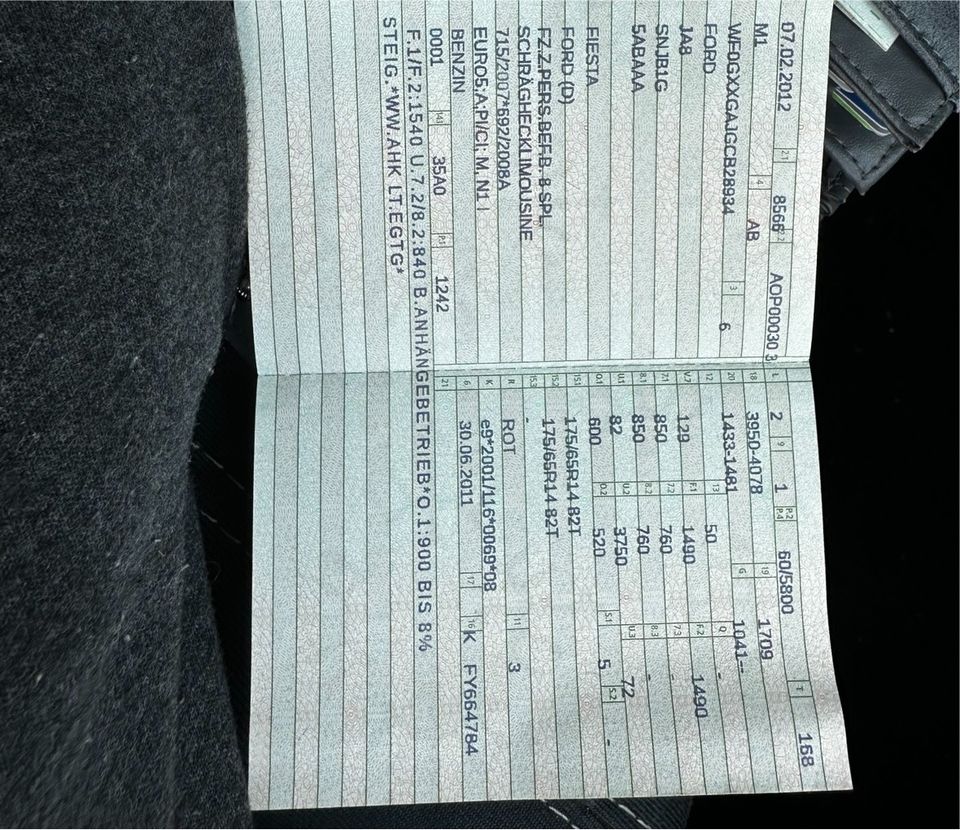 07.02.2012 2.1 8566 2.2 AOP00030 3 L 2 9 1 P.2 P.4 60/5800 T 168
M1 4 AB 18 3950-4078 19 1709
WF0GXXGAJGCB28934 3 6 20 1433-1481 G 1041--
FORD 12 13 50 Q -
JA8 V.7 129 F.1 1490 F.2 1490
SNJB1G 7.1 850 7.2 760 7.3 -
5ABAAA 8.1 850 8.2 760 8.3 -
U.1 82 U.2 3750 U.3 72
FIESTA O.1 600 O.2 520 S.1 5 S.2 -
FORD (D) 15.1 175/65R14 82T
FZ.Z.PERS.BEF.B. 8 SPL. 15.2 175/65R14 82T
SCHRÄGHECKLIMOUSINE 15.3 -
715/2007*692/2008A R ROT 11 3
EURO5;A;PI/CI; M, N1 I K e9*2001/116*0069*08
BENZIN 6 30.06.2011 17 K 16 FY664784
0001 14.1 35A0 P.1 1242 21
F.1/F.2:1540 U.7.2/8.2:840 B.ANHÄNGEBETRIEB*O.1:900 BIS 8%
STEIG.*WW.AHK LT.EGTG*